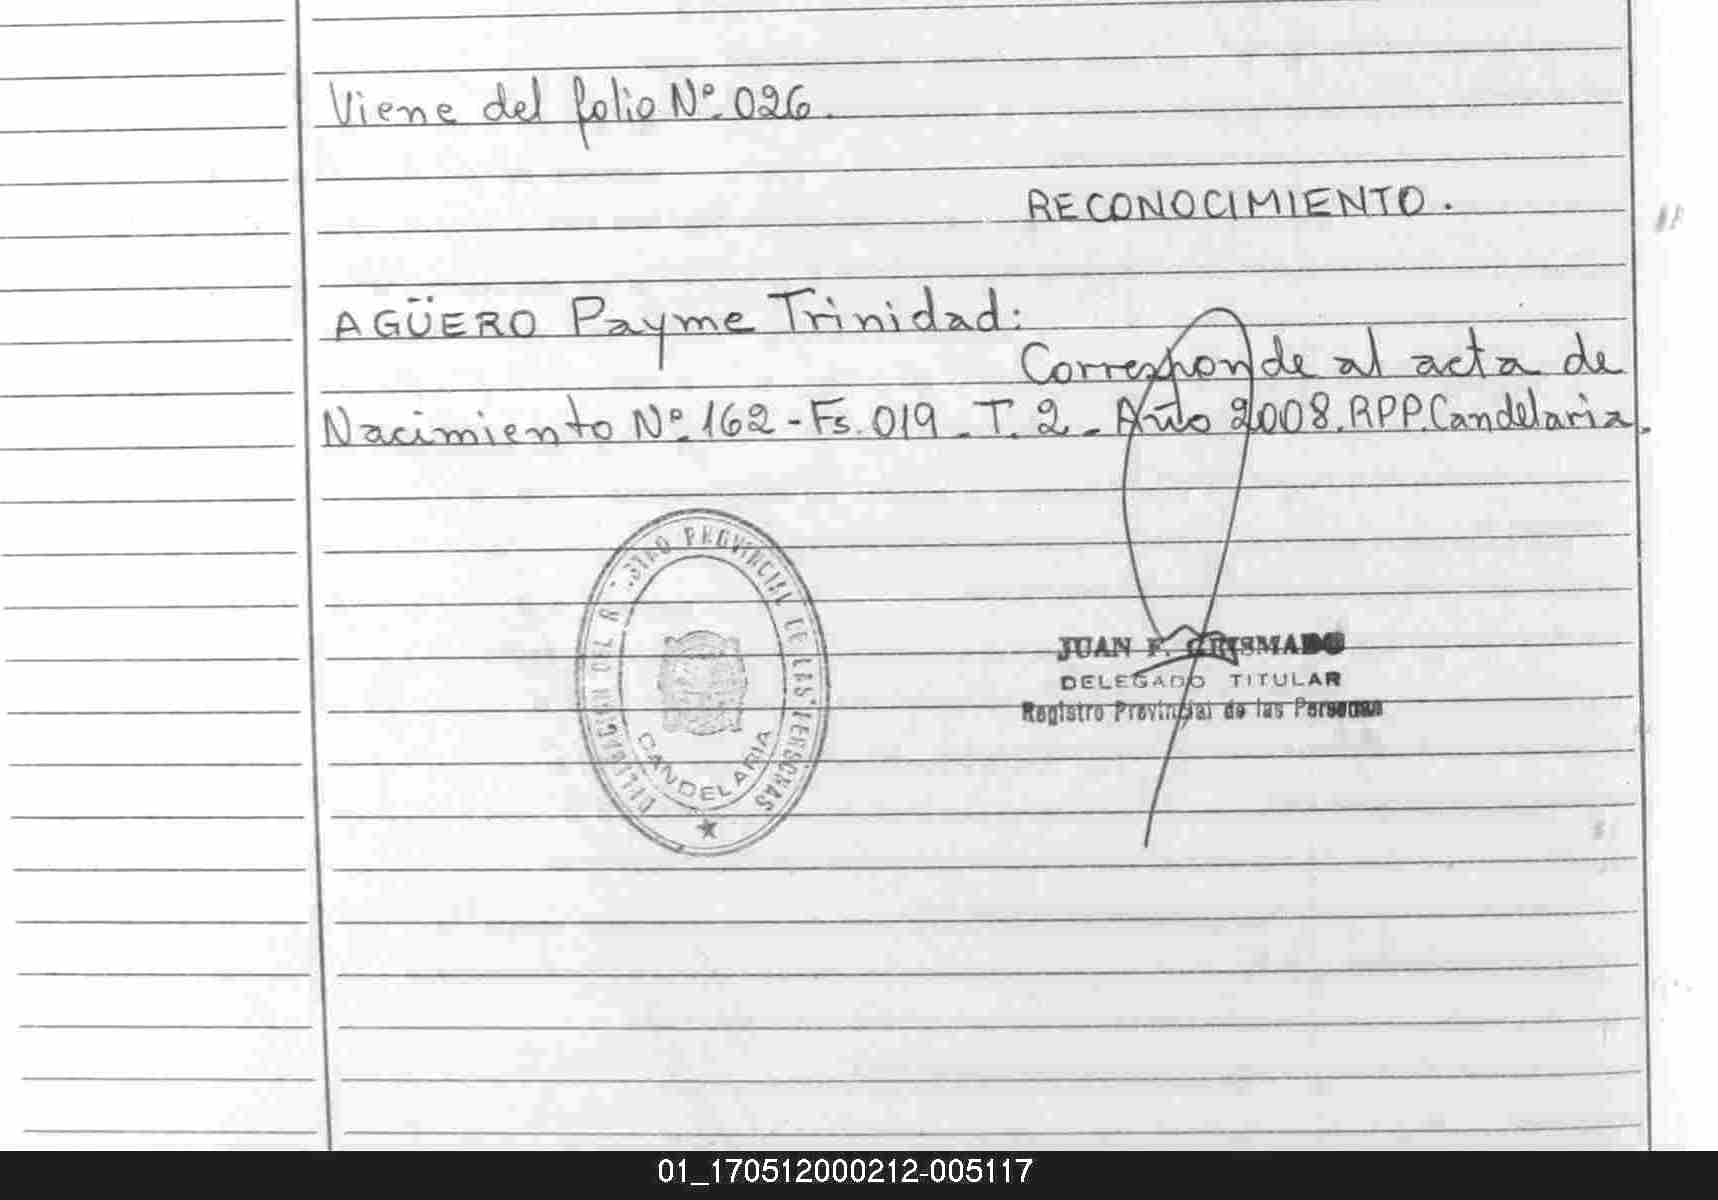 Viene del folio Nº 026.
RECONOCIMIENTO.
AGÜERO Payme Trinidad:
Corresponde al acta de
Nacimiento Nº 162 - Fs. 019 - T. 2 - Año 2008. RPP. Candelaria.
DELEGACION DEL REGISTRO PROVINCIAL DE LAS PERSONAS
CANDELARIA
JUAN F. GRISMADO
DELEGADO TITULAR
Registro Provincial de las Personas
01_170512000212-005117